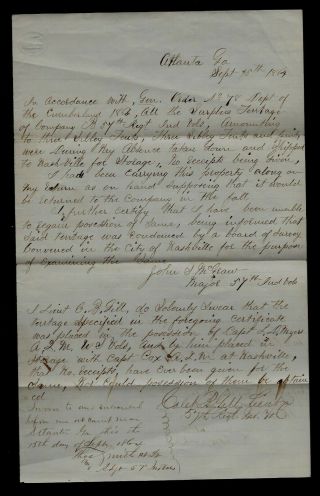 Atlanta Ga
Sept 25th 1864
In Accordance with, Gen. Order No 78 Dept of
the Cumberland 1864, All the Surplus Tentage
of Company B 57th Regt Ind Vols, Amounting
to three Sibley Tents, Three Sibley
were During my Absence taken Down and Shipped
to Nashville for Storage, No receipts being Given,
I had been Carrying this property along on
my return as on hand supposing that it would
be returned to the Company in the fall
I further Certify that I have been unable
to regain possession of Same, being informed that
said tentage was condemned by a board of Survey
Convened in the City of Nashville for the purpose
of Examining the Same
John S McGraw
Major 57th Ind Vols
I Lieut C. B. do Solemnly Swear that the
tentage Specified in the foregoing Certificate
was placed in the possession of Capt L. D. Myers
A. Q. M. U S Vols and by him placed in
Storage with Capt Cox A. Q. M. at Nashville,
that No Receipts, have Ever been given for the
Same, Nor Could possession of them be obtain
ed
57th Regt Ind. Vol
Sworn to and subscribed
before me at camp near
Atlanta Ga this the
25th day of Sept 1864
Adjt 57 Ind Vols